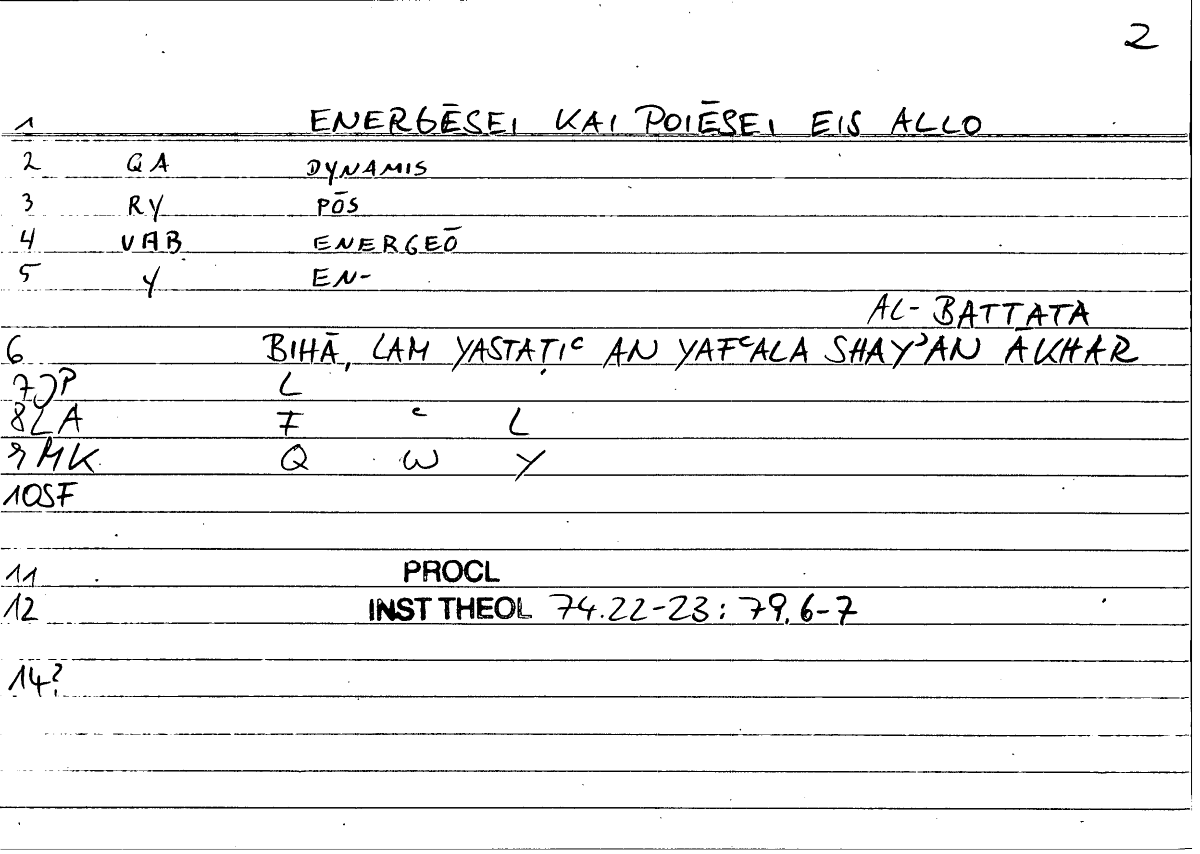 2
1 ENERGĒSEI KAI POIĒSEI EIS ALLO
2 QA DYNAMIS
3 RY PŌS
4 VAB ENERGEŌ
5 Y EN-
AL-BATTATA
6 BIHĀ, LAM YASTAṬIᶜ AN YAFᶜALA SHAYʾAN ĀKHAR
7JP L
8LA F ᶜ L
9MK Q W Y
10SF
11 PROCL
12 INST THEOL 74.22-23: 79.6-7
14?